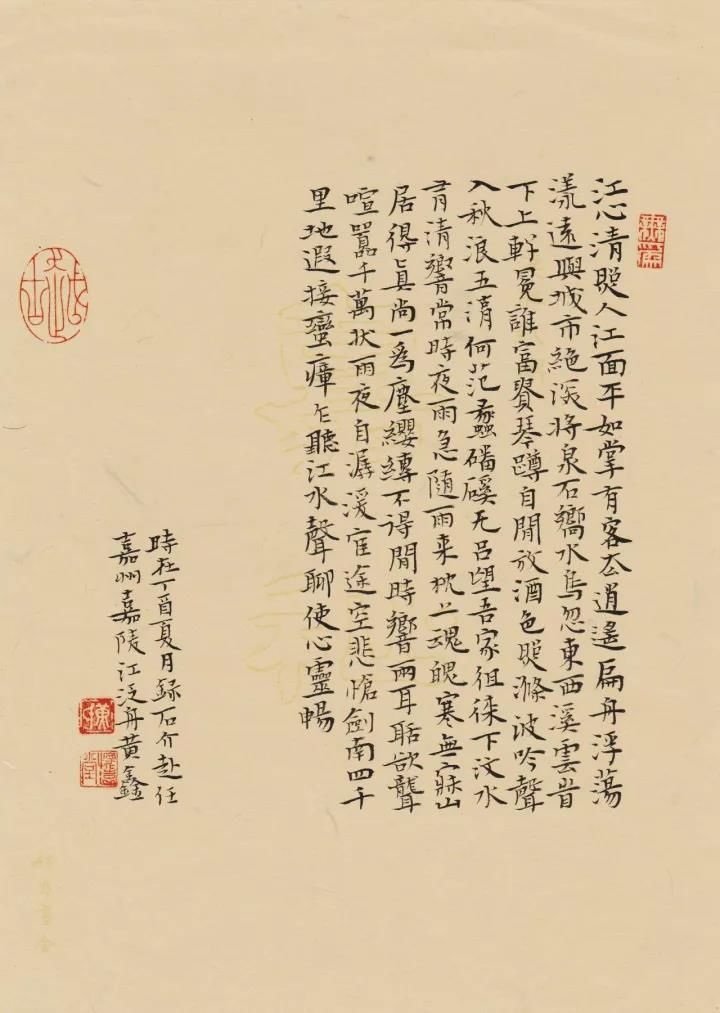 江心清照人江面平如掌有客太逍遙扁舟浮蕩
漾遠與城市絕深將泉石嚮水鳥忽東西溪雲皆
下上軒冕誰富貴琴蹲自閒放酒色照滌波吟聲
入秋浪五清何范蠡磻磎无呂望吾家徂徠下汶水
青清響常時夜雨急隨雨來枕上魂魄寒無寐山
居得真尚一為塵纓縛不得閒時響兩耳聒欲聾
喧囂千萬狀雨夜自潺湲宦途空悲愴劍南四千
里地遐接蠻瘴乍聽江水聲聊使心靈暢
時在丁酉夏月錄石介赴任
嘉州嘉陵江泛舟黃鑫